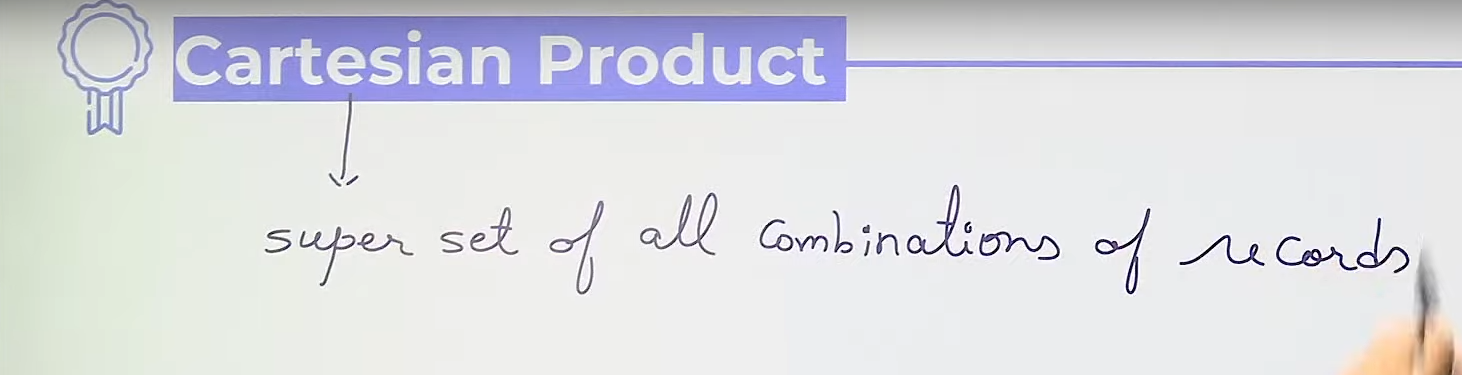 Cartesian Product
super set of all combinations of records